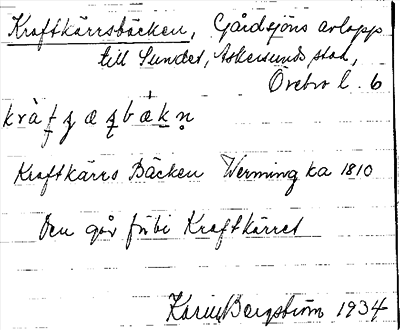 Kraftkärrsbäcken, Gårdsjöns avlopp
till Sundet, Askersunds stad,
Örebro l. 6
Kraftkärrs Bäcken Werming ka 1810
Den går förbi Kraftkärret
Karin Bergström 1934